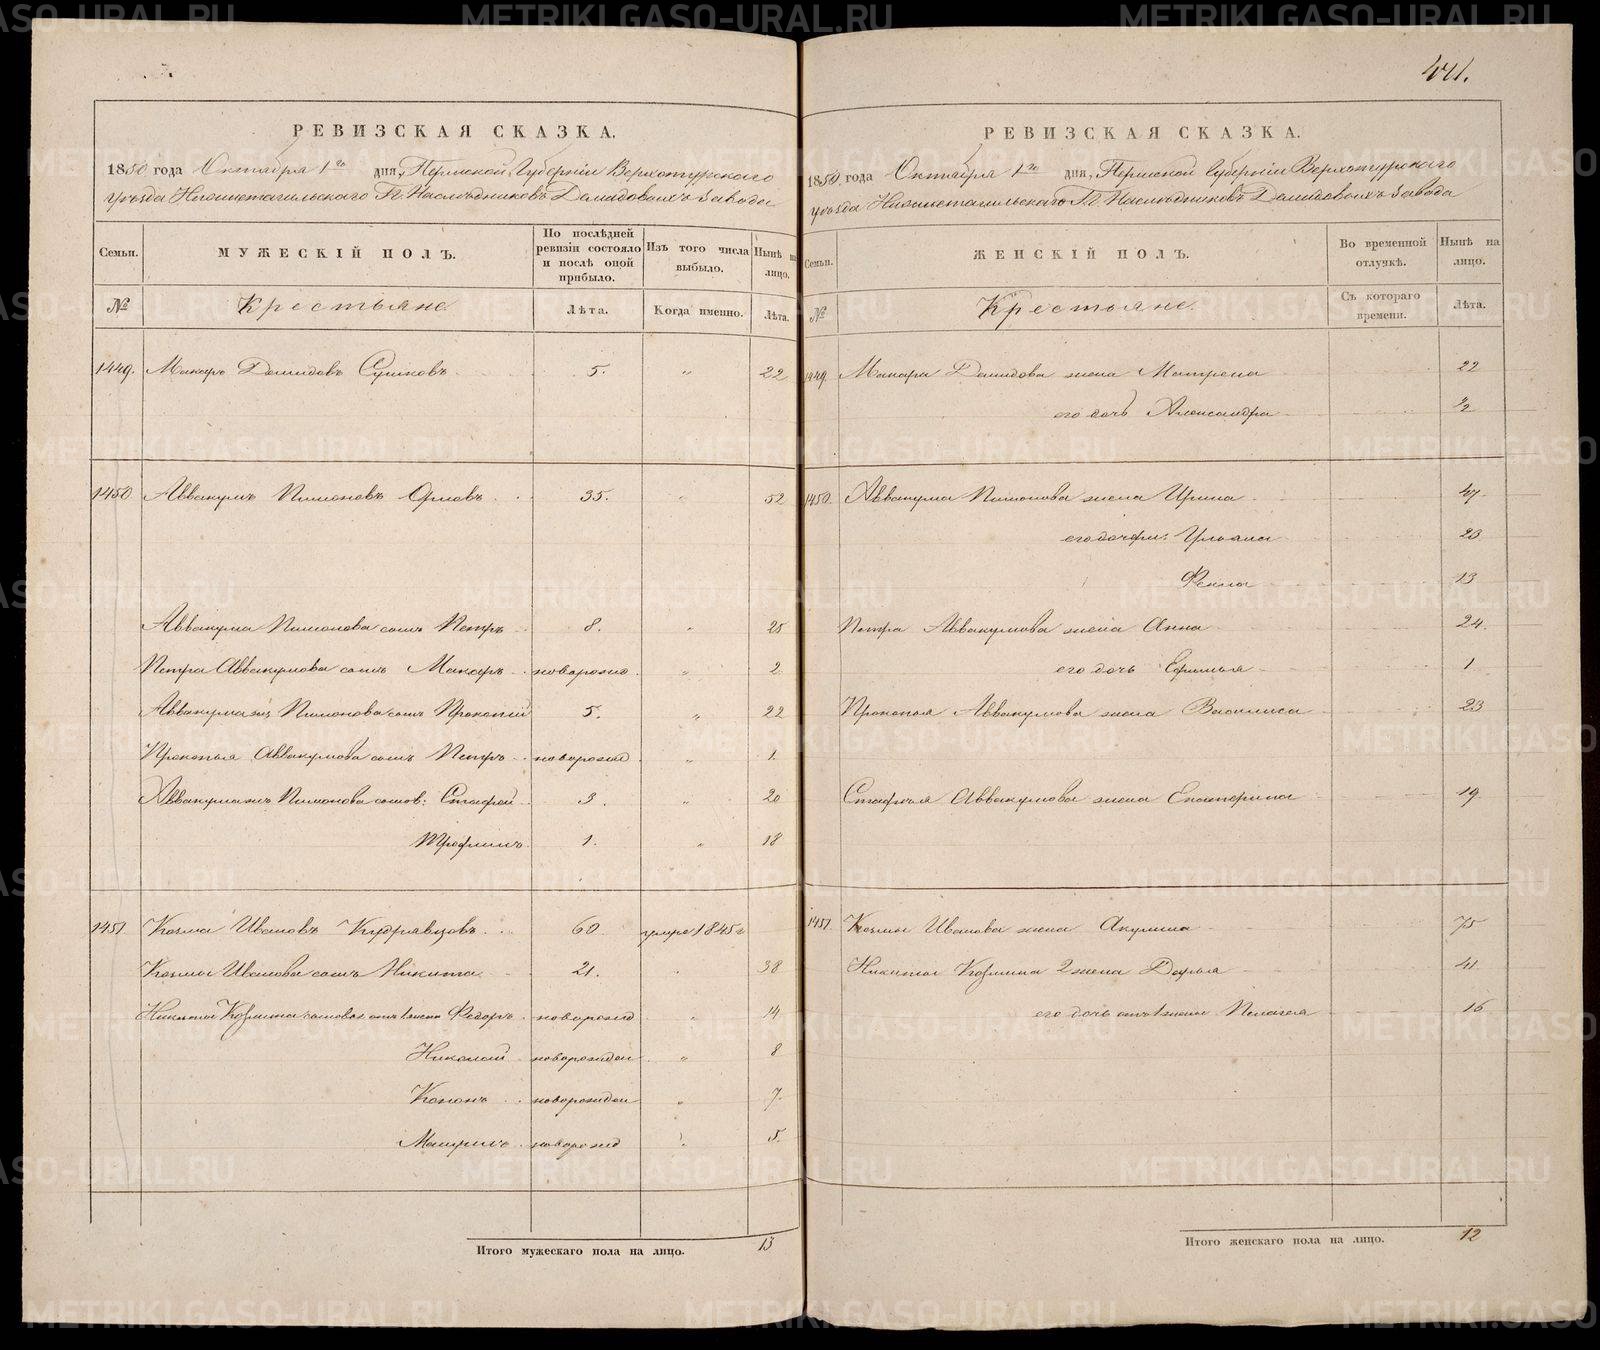 441.
РЕВИЗСКАЯ СКАЗКА.
1850 года Октября 1го дня, Пермской Губерніи Верхотурскаго
уѣзда Нижнетагильскаго Гг. Наслѣдниковъ Демидовыхъ завода
Семьи.
МУЖЕСКІЙ ПОЛЪ.
По послѣдней ревизіи состояло и послѣ оной прибыло.
Изъ того числа выбыло.
Нынѣ на лицо.
№
Крестьяне.
Лѣта.
Когда именно.
Лѣта.
1449. Макаръ Демидовъ Сушковъ 5. " 22
1450 Аввакумъ Пимоновъ Орловъ 35. " 52
Аввакума Пимонова сынъ Петръ 8. " 25
Петра Аввакумова сынъ Макаръ новорожд. " 2
Аввакума Пимонова сынъ Прокопій 5. " 22
Прокопья Аввакумова сынъ Петръ новорожд " 1.
Аввакума Пимонова сынов: Стафей 3. " 20
Трофимъ 1. " 18
1451. Козма Ивановъ Кудрявцовъ 60. умре 1845г
Козмы Иванова сынъ Никита 21. " 38
Никиты Козмина сыновья отъ 1 жены Федоръ новорожд " 14
Николай новорожден " 8
Кононъ новорожден " 7.
Мавринъ новорожд " 5.
Итого мужескаго пола на лицо. 13
РЕВИЗСКАЯ СКАЗКА.
1850 года Октября 1го дня, Пермской Губерніи Верхотурскаго
уѣзда Нижнетагильскаго Гг. Наслѣдниковъ Демидовыхъ завода
Семьи.
ЖЕНСКІЙ ПОЛЪ.
Во временной отлучкѣ.
Нынѣ на лицо.
№
Крестьяне.
Съ котораго времени.
Лѣта.
1449. Макара Демидова жена Матрена 22
его дочь Александра ½
1450. Аввакума Пимонова жена Ирина 47.
его дочери: Ульяна 20.
Фекла 13
Петра Аввакумова жена Анна 24.
его дочь Ефимья 1
Прокопья Аввакумова жена Василиса 23
Стафѣя Аввакумова жена Екатерина 19
1451. Козмы Иванова жена Акулина 75
Никиты Козмина 2 жена Дарья 41.
его дочь отъ 1 жены Пелагея 16
Итого женскаго пола на лицо. 12
METRIKI.GASO-URAL.RU